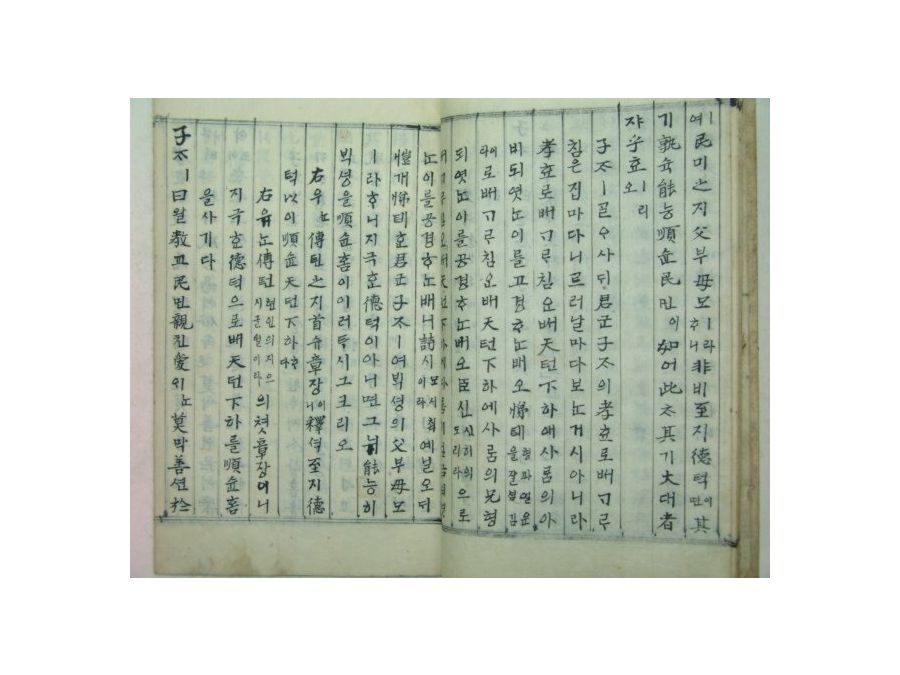 예民민之지父부母모ㅣ라ᄒᆞ니非비至지德덕이면其
기孰슉能능順슌民민이如여此ᄎᆞ其기大대者
쟈乎호ㅣ리오
子ᄌᆞㅣᄀᆞᆯᄋᆞ샤ᄃᆡ君군子ᄌᆞ의孝효로ᄡᅥᄀᆞᄅᆞ
침은집마다니르러날마다보ᄂᆞᆫ거시아니라
孝효로ᄡᅥᄀᆞᄅᆞ침오ᄡᅥ天텬下하애사ᄅᆞᆷ의아
비되엿ᄂᆞᆫ이를공경ᄒᆞᄂᆞᆫ배오悌뎨형과얼운을잘셤김
이라로ᄡᅥᄀᆞᄅᆞ침오ᄡᅥ天텬下하에사ᄅᆞᆷ의兄형
되엿ᄂᆞᆫ이를공경ᄒᆞᄂᆞᆫ배오臣신신하의도리라으로
ᄂᆞᆫ이를공경ᄒᆞᄂᆞᆫ배니詩시모시라예닐오ᄃᆡ
愷개悌뎨ᄒᆞᆫ君군子ᄌᆞㅣ여ᄇᆡᆨ셩의父부母모
ㅣ라ᄒᆞ니지극ᄒᆞᆫ德덕이아니면그뉘能능히
ᄇᆡᆨ셩을順슌홈이이러ᄐᆞ시그크리오
右우ᄂᆞᆫ傳뎐之지首슈章장이니釋셕至지德
덕以이順슌天텬下하ᄒᆞ다
右우ᄂᆞᆫ傳뎐현인의지은글월이라의쳣章장이니
지극ᄒᆞᆫ德덕으로ᄡᅥ天텬下하를順슌홈
을사기다
子ᄌᆞㅣ曰왈教교民민親친愛ᄋᆡᄂᆞᆫ莫막善션於